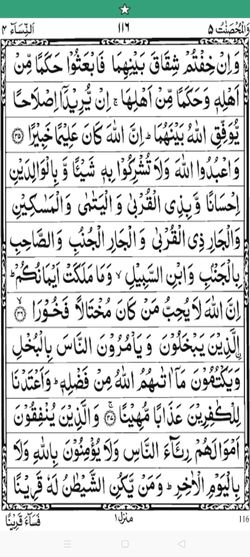 وَالْمُحْصَنٰتُ ٥ ١١٦ اَلنِّسَآء ٤
وَاِنْ خِفْتُمْ شِقَاقَ بَيْنِهِمَا فَابْعَثُوْا حَكَمًا مِّنْ
اَهْلِهٖ وَحَكَمًا مِّنْ اَهْلِهَا ۚ اِنْ يُّرِيْدَاۤ اِصْلَاحًا
يُّوَفِّقِ اللّٰهُ بَيْنَهُمَا ؕ اِنَّ اللّٰهَ كَانَ عَلِيْمًا خَبِيْرًا ﴿٣٥﴾
وَاعْبُدُوا اللّٰهَ وَلَا تُشْرِكُوْا بِهٖ شَيْـًٔا وَّ بِالْوَالِدَيْنِ
اِحْسَانًا وَّ بِذِى الْقُرْبٰى وَ الْيَتٰمٰى وَ الْمَسٰكِيْنِ
وَالْجَارِ ذِى الْقُرْبٰى وَ الْجَارِ الْجُنُبِ وَ الصَّاحِبِ
بِالْجَنْۢبِ وَابْنِ السَّبِيْلِ ۙ وَمَا مَلَكَتْ اَيْمَانُكُمْ ؕ
اِنَّ اللّٰهَ لَا يُحِبُّ مَنْ كَانَ مُخْتَالًا فَخُوْرًا ﴿٣٦﴾
اۨلَّذِيْنَ يَبْخَلُوْنَ وَ يَاْمُرُوْنَ النَّاسَ بِالْبُخْلِ
وَيَكْتُمُوْنَ مَاۤ اٰتٰىهُمُ اللّٰهُ مِنْ فَضْلِهٖ ؕ وَ اَعْتَدْنَا
لِلْكٰفِرِيْنَ عَذَابًا مُّهِيْنًا ﴿٣٧﴾ وَ الَّذِيْنَ يُنْفِقُوْنَ
اَمْوَالَهُمْ رِئَآءَ النَّاسِ وَلَا يُؤْمِنُوْنَ بِاللّٰهِ وَلَا
بِالْيَوْمِ الْاٰخِرِ ؕ وَمَنْ يَّكُنِ الشَّيْطٰنُ لَهٗ قَرِيْنًا
فَسَآءَ قَرِيْنًا منزل ١ 116